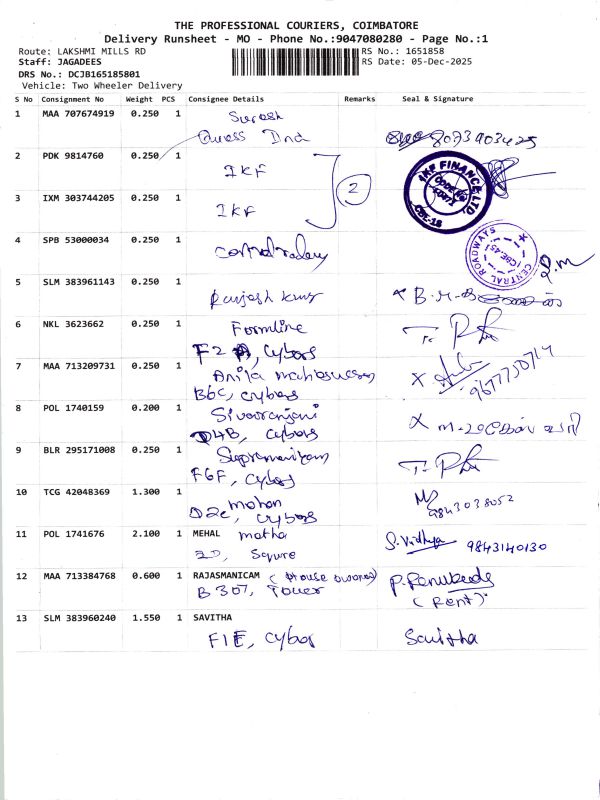 THE PROFESSIONAL COURIERS, COIMBATORE
Delivery Runsheet - MO - Phone No.:9047080280 - Page No.:1
Route: LAKSHMI MILLS RD RS No.: 1651858
Staff: JAGADEES RS Date: 05-Dec-2025
DRS No.: DCJB165185801
Vehicle: Two Wheeler Delivery
S No Consignment No Weight PCS Consignee Details Remarks Seal & Signature
1 MAA 707674919 0.250 1 Suresh
Quess Ind
2 PDK 9814760 0.250 1 IKF
IKF FINANCE LTD. CBE-18
3 IXM 303744205 0.250 1 IKF 2
4 SPB 53000034 0.250 1
CENTRAL ROADWAYS CBE-45
5 SLM 383961143 0.250 1 Ranjesh kumar
6 NKL 3623662 0.250 1 Formline
F2, Cybers
7 MAA 713209731 0.250 1 Anila
B6C, Cybers 9677730714
8 POL 1740159 0.200 1 Sivaranjani
D4B, Cybers
9 BLR 295171008 0.250 1
F6F, Cybers
10 TCG 42048369 1.300 1 mohan
D2C, Cybers 9843038052
11 POL 1741676 2.100 1 MEHAL matha
2D, Squre S. Vidhya 9843140130
12 MAA 713384768 0.600 1 RAJASMANICAM (House owner)
B 307, Tower (Rent)
13 SLM 383960240 1.550 1 SAVITHA
F1E, Cyber Savitha